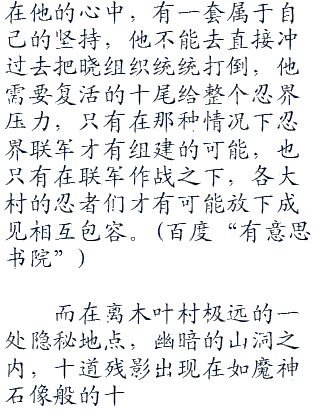 在他的心中，有一套属于自
己的坚持，他不能去直接冲
过去把晓组织统统打倒，他
需要复活的十尾给整个忍界
压力，只有在那种情况下忍
界联军才有组建的可能，也
只有在联军作战之下，各大
村的忍者们才有可能放下成
见相互包容。(百度“有意思
书院”)
而在离木叶村极远的一
处隐秘地点，幽暗的山洞之
内，十道残影出现在如魔神
石像般的十